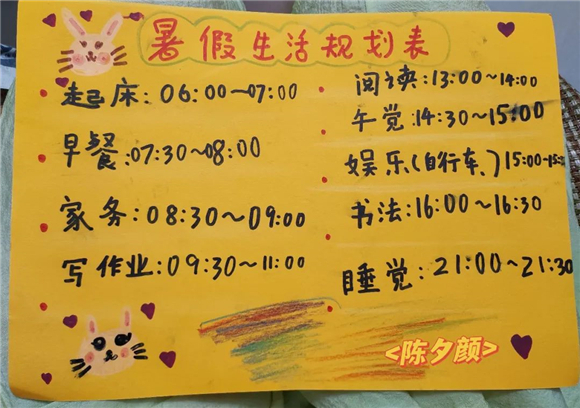 暑假生活规划表
起床:06:00~07:00
早餐:07:30~08:00
家务:08:30~09:00
写作业:09:30~11:00
阅读:13:00~14:00
午觉:14:30~15:00
娱乐(自行车)15:00-15:
书法:16:00~16:30
睡觉:21:00~21:30
<陈夕颜>